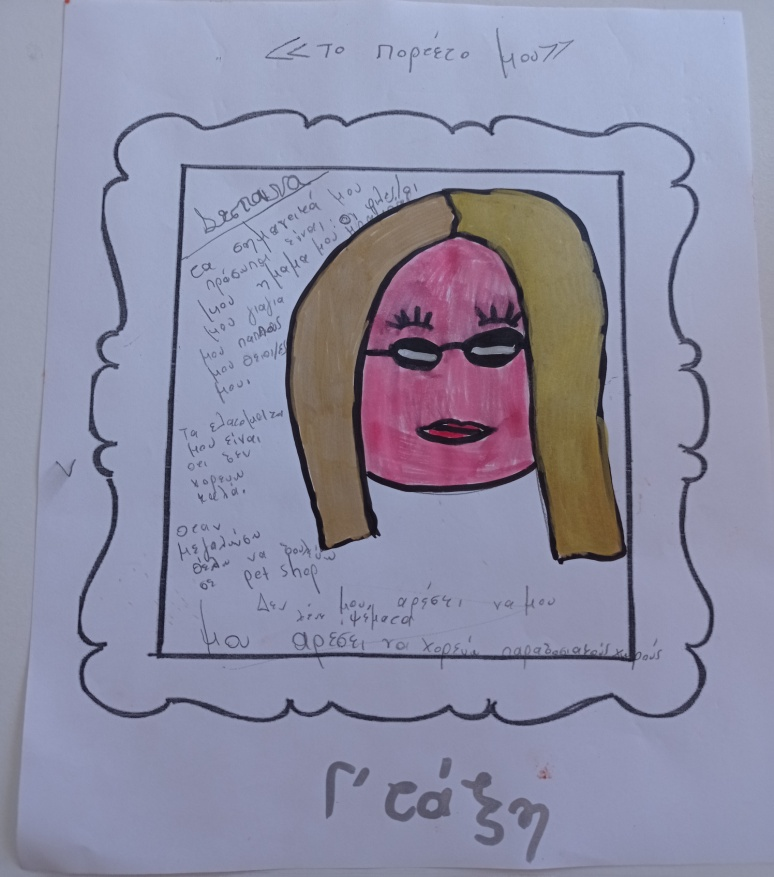 <<το πορτέτο μου>>
Δέσποινα
τα σημαντικά μου
πρόσωπα είναι: οι φίλες/οι
μου η μαμά μου
μου γιαγιά
μου παππούς
μου θείοι/ες
μου.
Τα ελατώματα
μου είναι
οτι δεν
χορεύω
καλά.
οταν
μεγαλώσω
θέλω να δουλεύω
σε pet shop
Δεν μου αρέσει να μου
λέν ψέματα
μου αρέσει να χορεύω παραδοσιακούς χορούς
Γ' τάξη